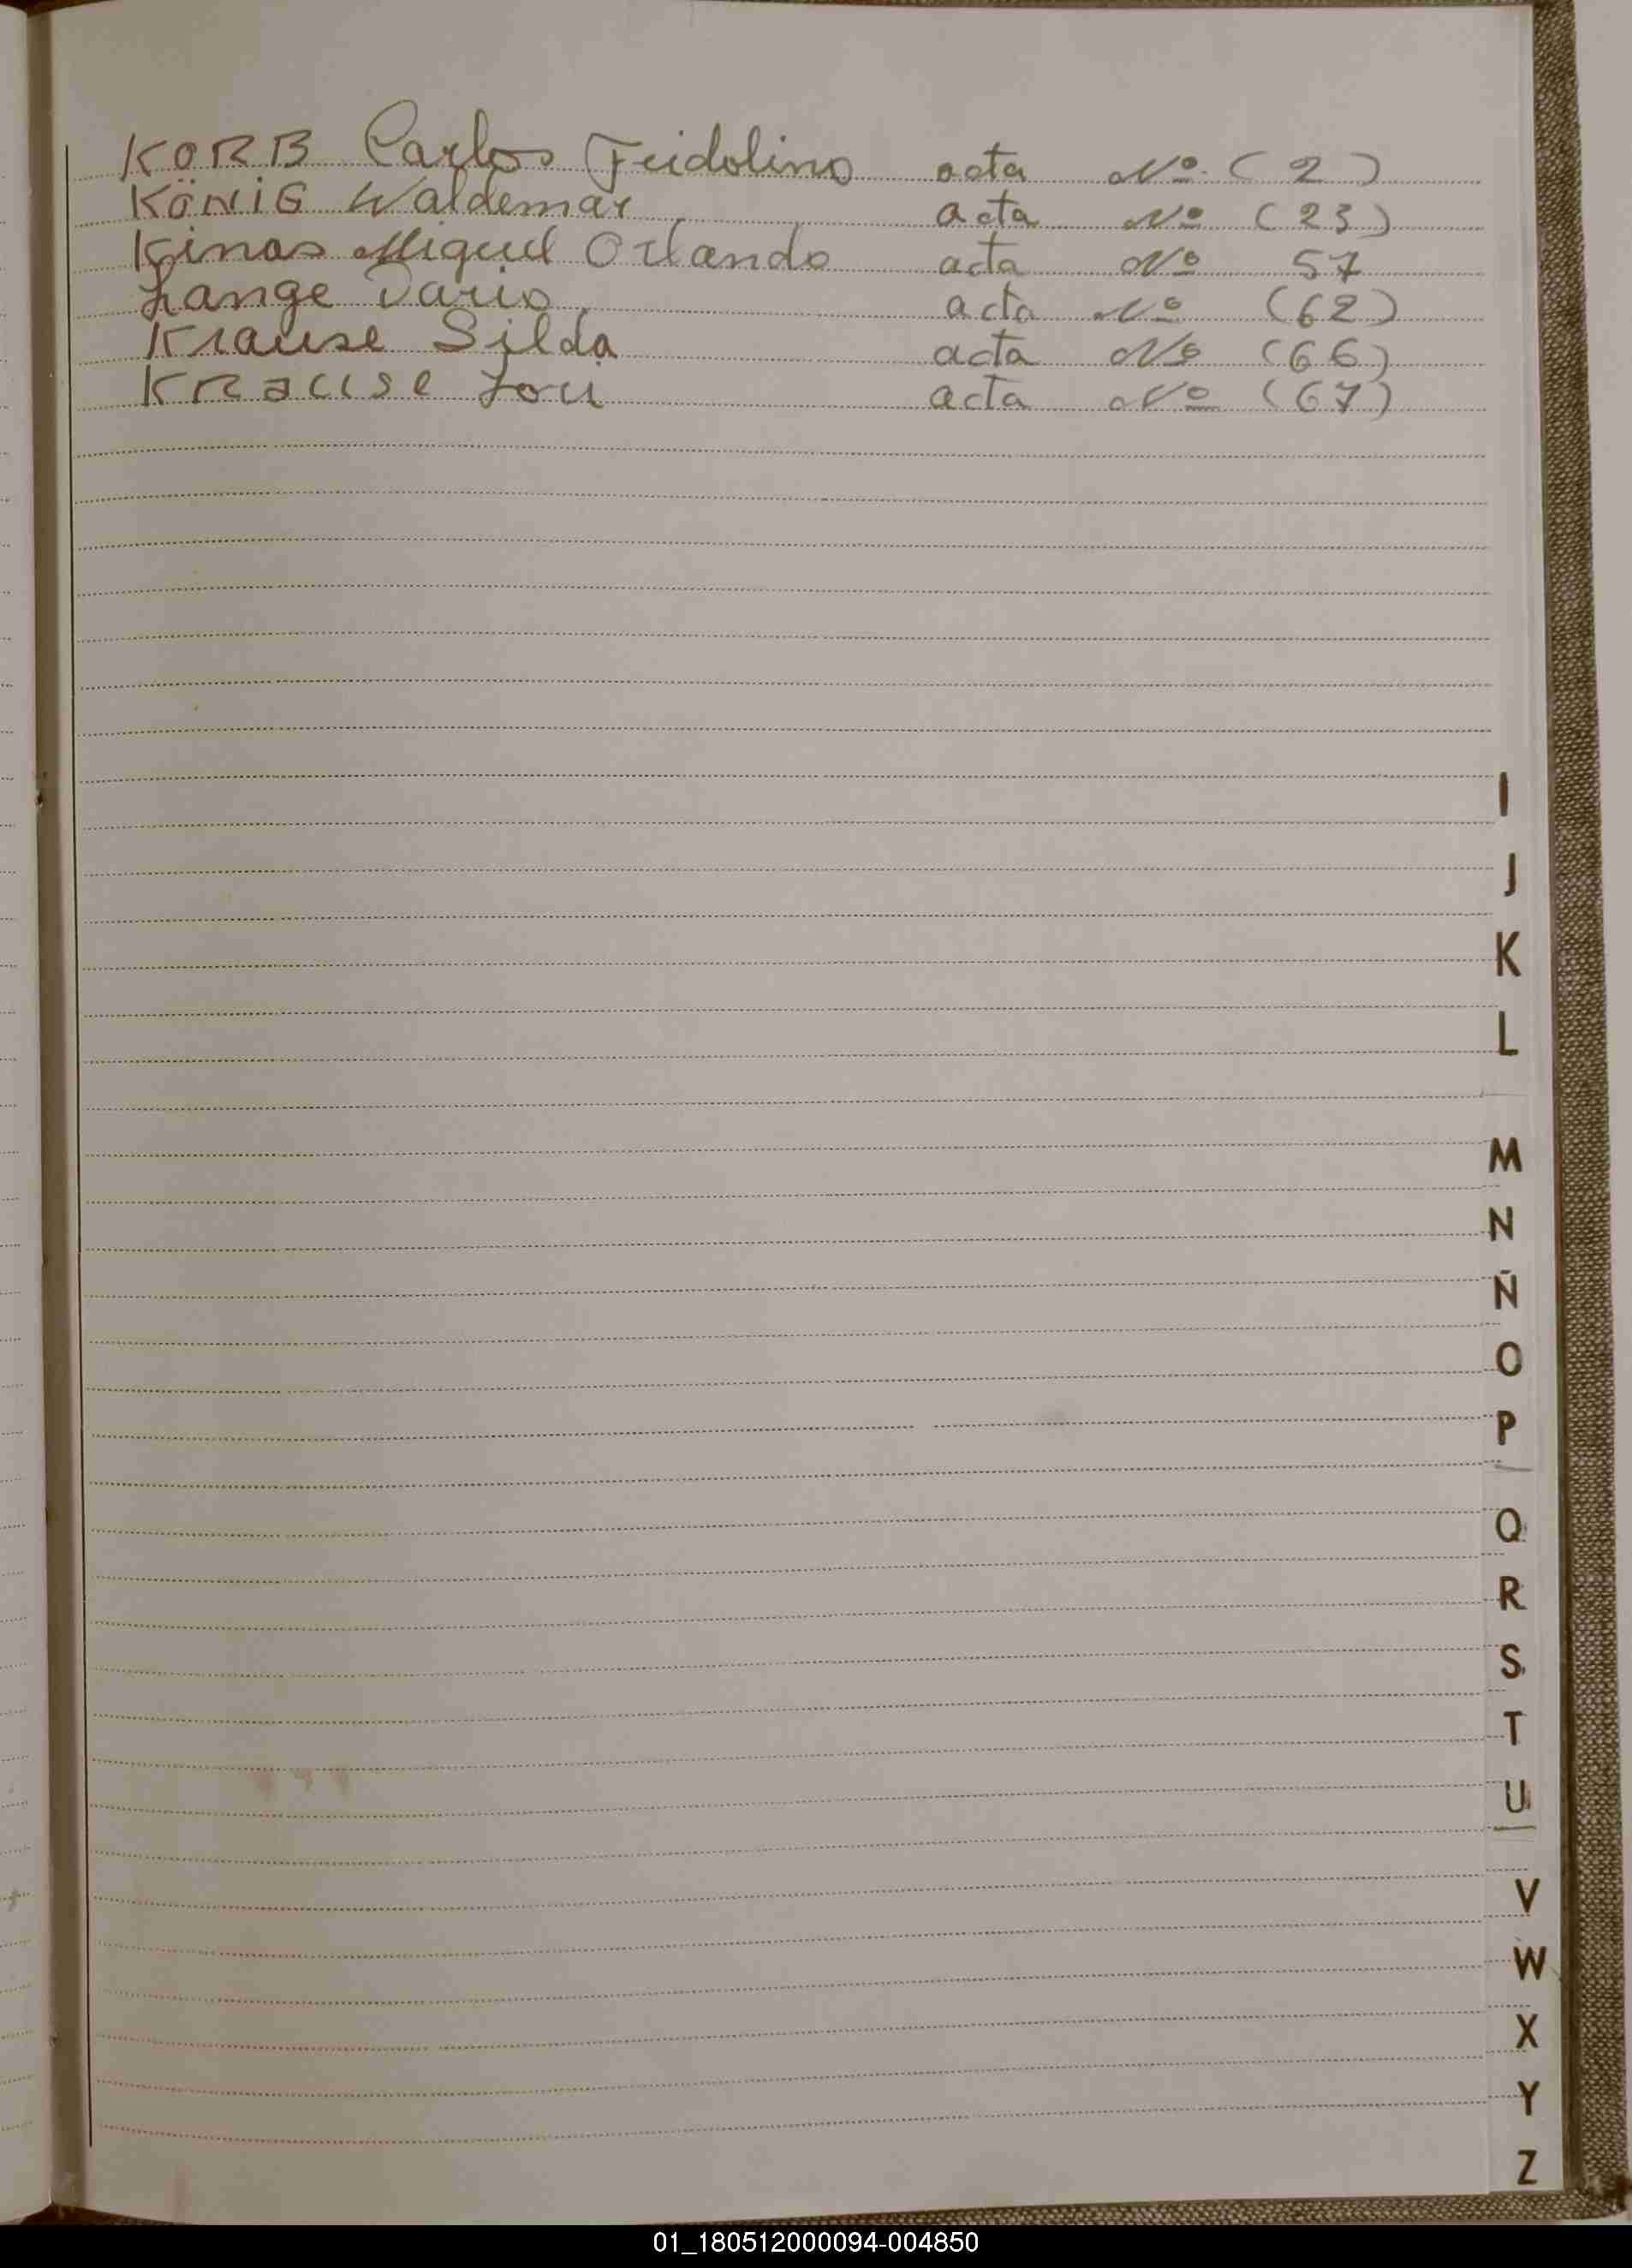 KORB Carlos Feidolino acta Nº (2)
KöNiG Waldemar acta Nº (23)
Kinas Miguel Orlando acta Nº 57
Lange Dario acta Nº (62)
Krause Silda acta Nº (66)
KRause Lori acta Nº (67)
I
J
K
L
M
N
Ñ
O
P
Q
R
S
T
U
V
W
X
Y
Z
01_180512000094-004850